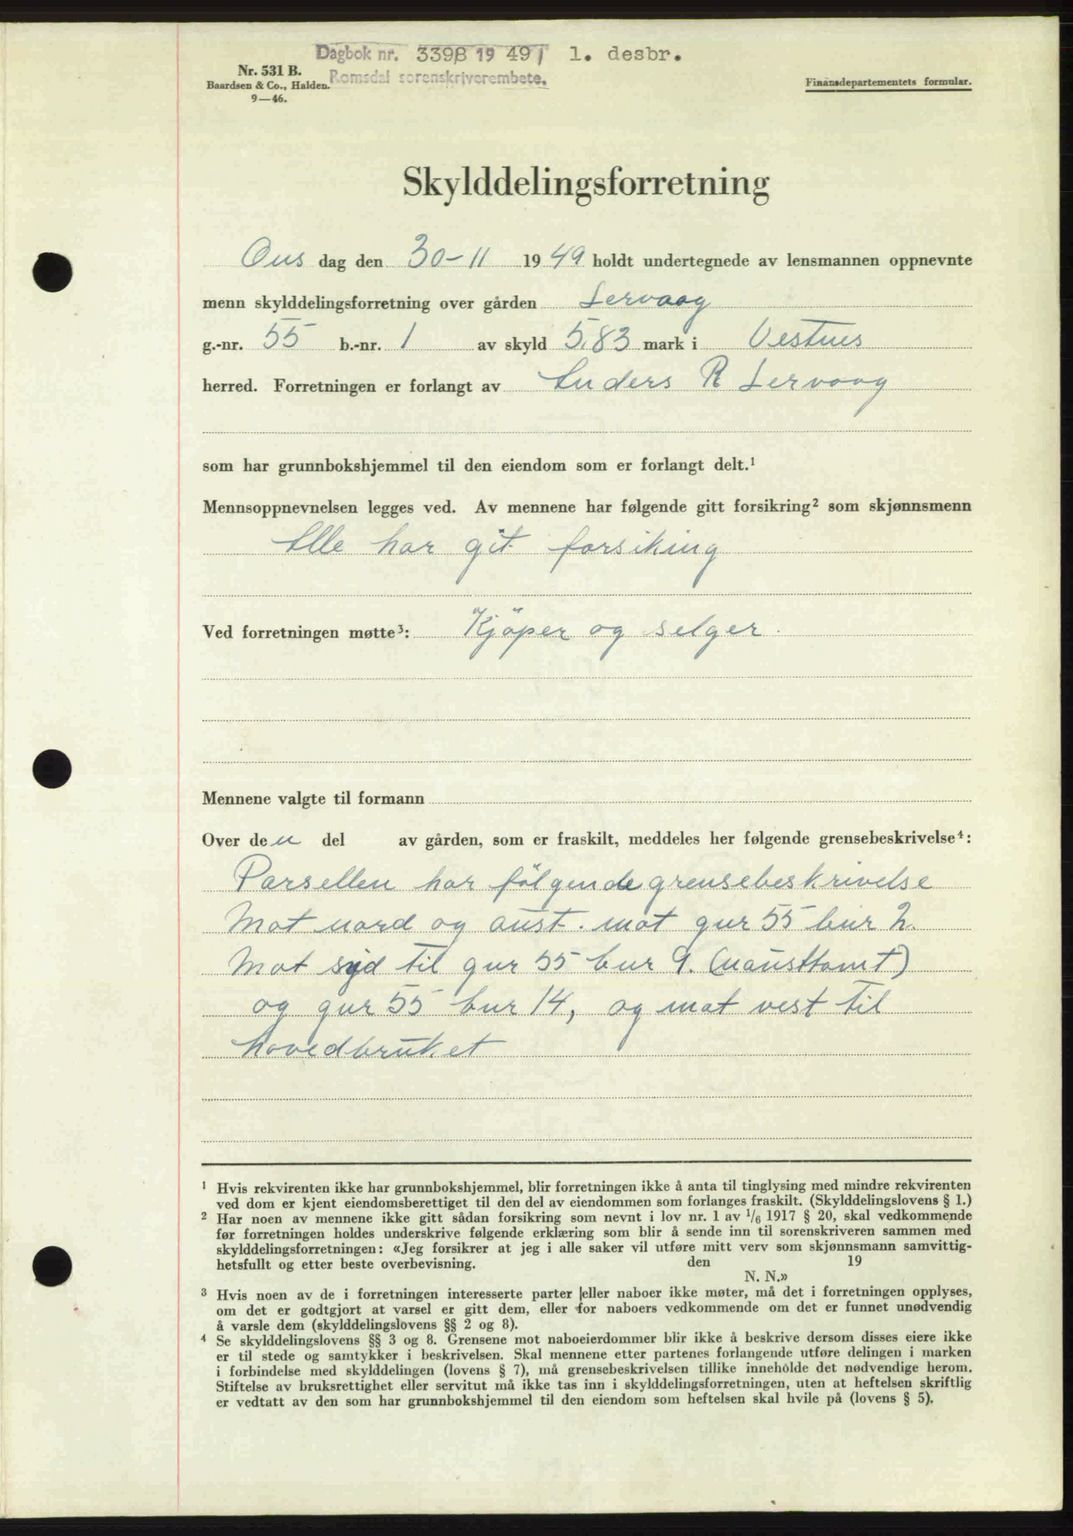 Dagbok nr. 3398 1949 1. desbr.
Romsdal sorenskriverembete.
Nr. 531 B.
Baardsen & Co., Halden.
9—46.
Finansdepartementets formular.
Skylddelingsforretning
Ons dag den 30-11 1949 holdt undertegnede av lensmannen oppnevnte
menn skylddelingsforretning over gården Lervaag
g.-nr. 55 b.-nr. 1 av skyld 5,83 mark i Vestnes
herred. Forretningen er forlangt av Anders R Lervaag
som har grunnbokshjemmel til den eiendom som er forlangt delt.¹
Mennsoppnevnelsen legges ved. Av mennene har følgende gitt forsikring² som skjønnsmenn
Alle har git forsiking
Ved forretningen møtte³: Kjöper og selger.
Mennene valgte til formann
Over den del av gården, som er fraskilt, meddeles her følgende grensebeskrivelse⁴:
Parsellen har fölgende grensebeskrivelse
Mot nord og aust. mot gnr 55 bnr 2.
Mot syd til gnr 55 bnr 9. (nausttomt)
og gnr 55 bnr 14, og mot vest til
hovedbruket
¹ Hvis rekvirenten ikke har grunnbokshjemmel, blir forretningen ikke å anta til tinglysing med mindre rekvirenten
ved dom er kjent eiendomsberettiget til den del av eiendommen som forlanges fraskilt. (Skylddelingslovens § 1.)
² Har noen av mennene ikke gitt sådan forsikring som nevnt i lov nr. 1 av 1/6 1917 § 20, skal vedkommende
før forretningen holdes underskrive følgende erklæring som blir å sende inn til sorenskriveren sammen med
skylddelingsforretningen: «Jeg forsikrer at jeg i alle saker vil utføre mitt verv som skjønnsmann samvittig-
hetsfullt og etter beste overbevisning. den 19
N. N.»
³ Hvis noen av de i forretningen interesserte parter eller naboer ikke møter, må det i forretningen opplyses,
om det er godtgjort at varsel er gitt dem, eller for naboers vedkommende om det er funnet unødvendig
å varsle dem (skylddelingslovens §§ 2 og 8).
⁴ Se skylddelingslovens §§ 3 og 8. Grensene mot naboeierdommer blir ikke å beskrive dersom disses eiere ikke
er til stede og samtykker i beskrivelsen. Skal mennene etter partenes forlangende utføre delingen i marken
i forbindelse med skylddelingen (lovens § 7), må grensebeskrivelsen tillike inneholde det nødvendige herom.
Stiftelse av bruksrettighet eller servitut må ikke tas inn i skylddelingsforretningen, uten at heftelsen skriftlig
er vedtatt av den som har grunnbokshjemmel til den eiendom som heftelsen skal hvile på (lovens § 5).